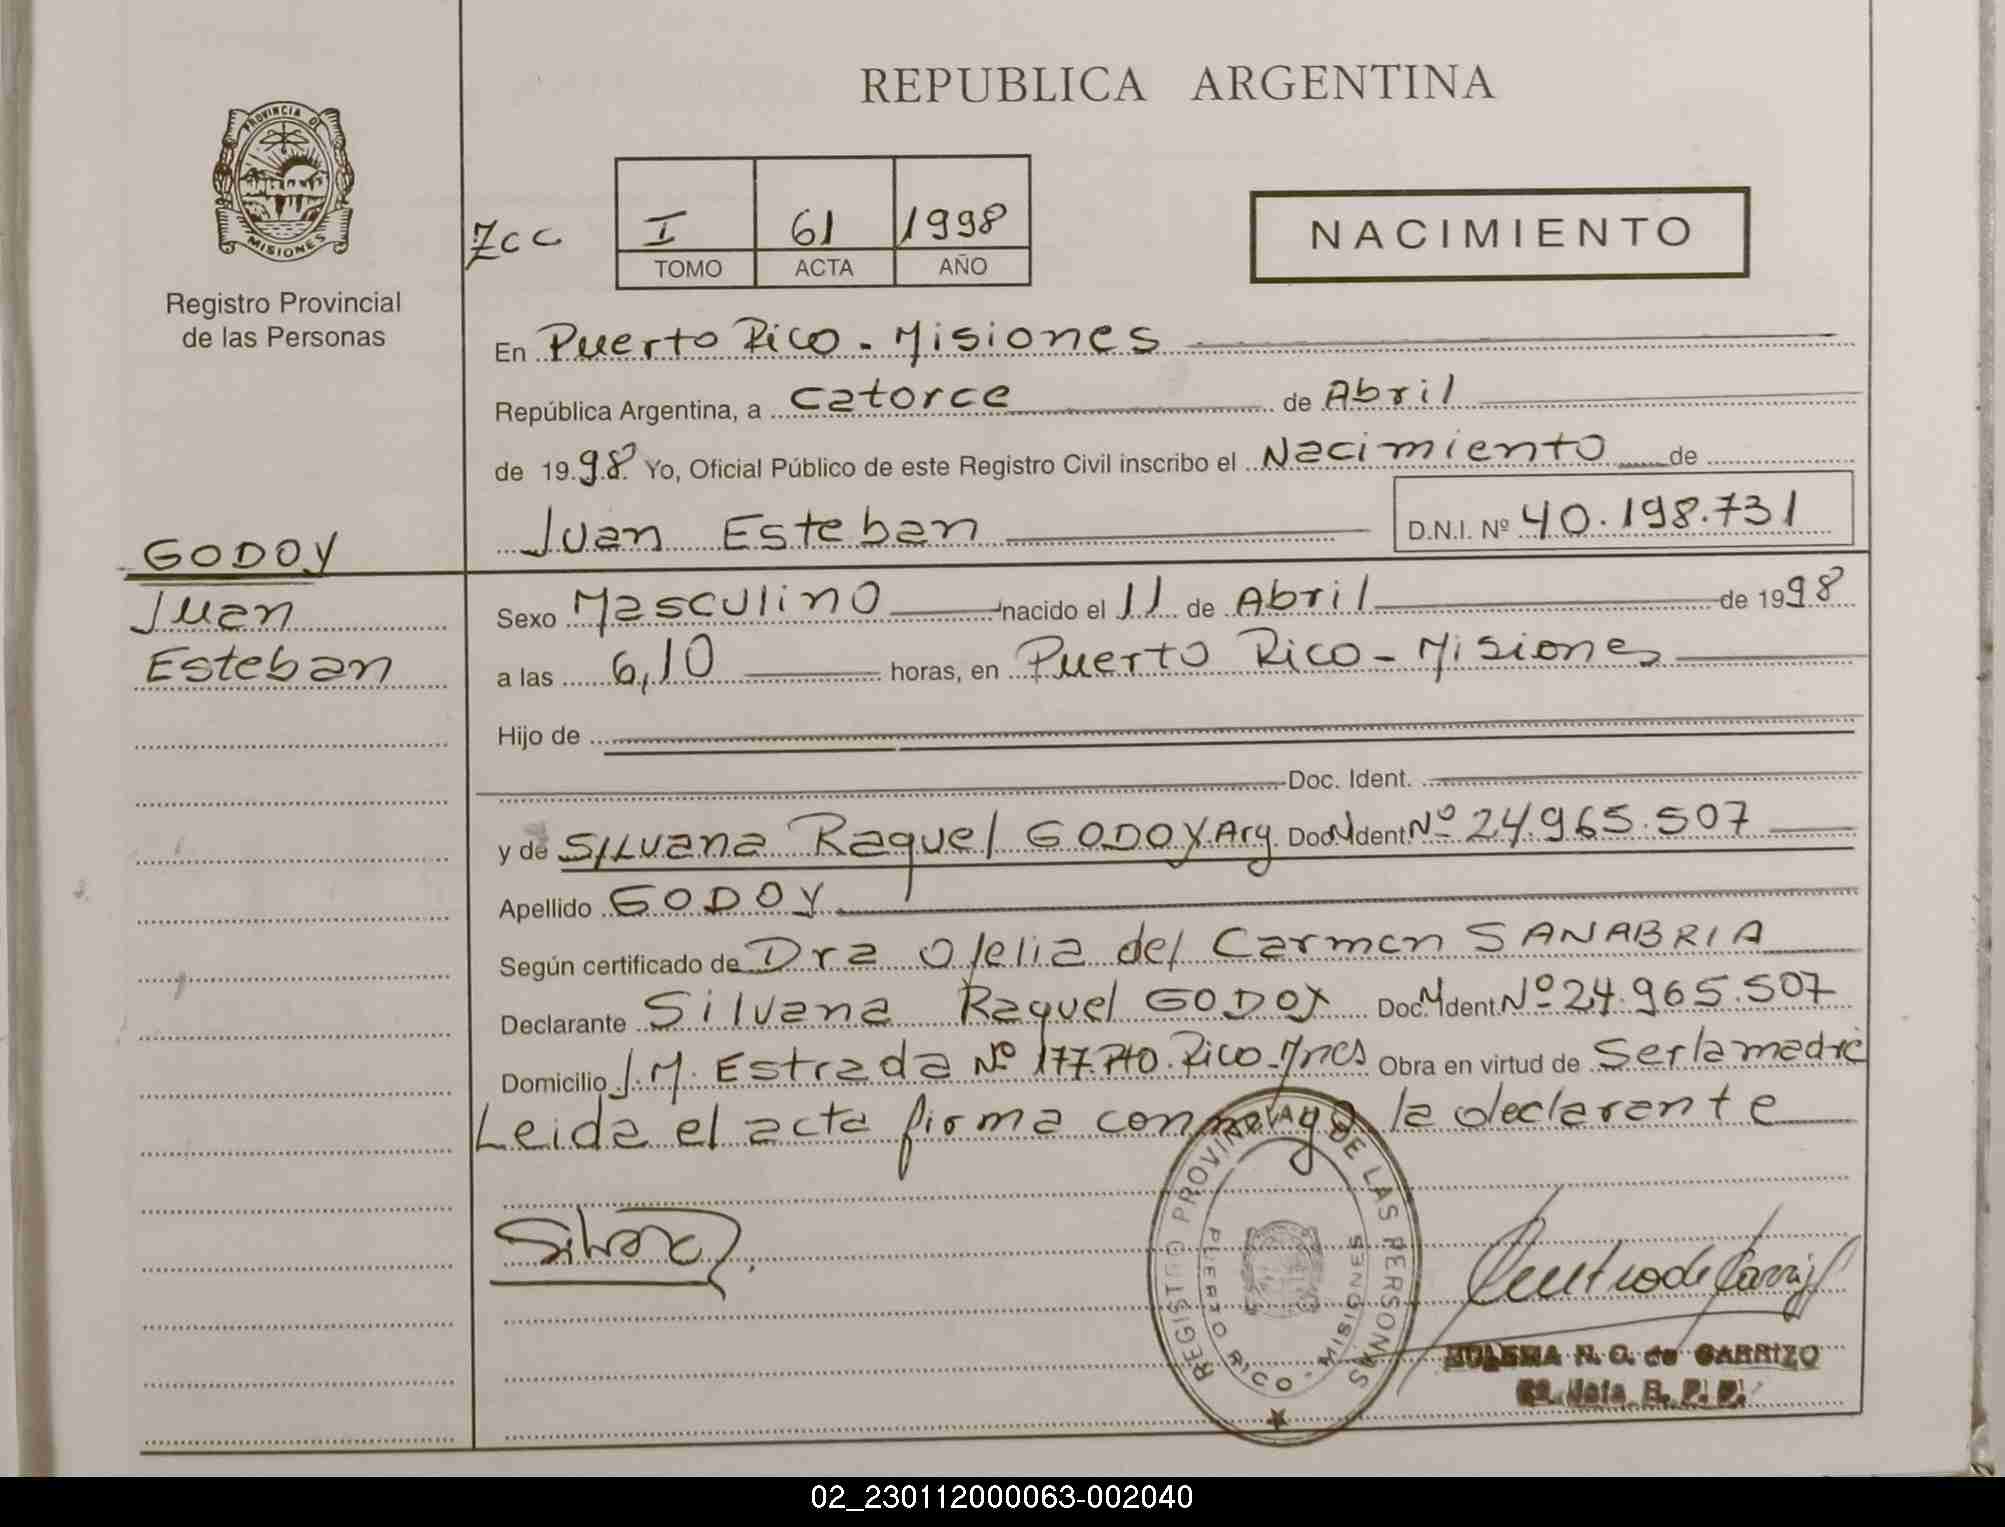 REPUBLICA ARGENTINA
PROVINCIA DE
MISIONES
Registro Provincial
de las Personas
Zcc
I 61 1998
TOMO ACTA AÑO
NACIMIENTO
En Puerto Rico - Misiones
República Argentina, a catorce de Abril
de 1998 Yo, Oficial Público de este Registro Civil inscribo el Nacimiento de
Juan Esteban D.N.I. Nº 40.198.731
GODOY
Juan
Esteban
Sexo Masculino nacido el 11 de Abril de 1998
a las 6,10 horas, en Puerto Rico - Misiones
Hijo de
Doc. Ident.
y de Silvana Raquel GODOY Arg. Doc. Ident. Nº 24.965.507
Apellido GODOY
Según certificado de Dra Ofelia del Carmen SANABRIA
Declarante Silvana Raquel GODOY Doc. Ident. Nº 24.965.507
Domicilio J.M. Estrada Nº 177. Pto. Rico - Mnes Obra en virtud de Ser la madre
Leida el acta firma conmigo la declarante
REGISTRO PROVINCIAL DE LAS PERSONAS
PUERTO RICO - MISIONES
Silvana
N. G. de CARRIZO
Jefa R. P. P.
02_230112000063-002040